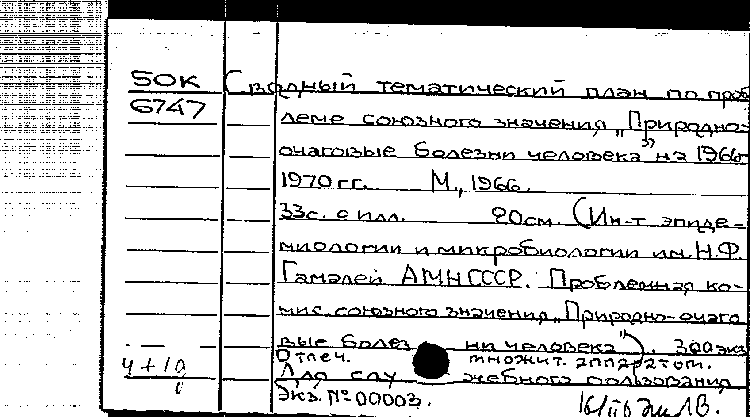 50К Сводный тематический план по проб
6747 леме союзного значения „Природно-
очаговые болезни человека" на 1966-
1970 гг. М., 1966.
33с. с илл. 20см. (Ин-т эпиде-
миологии и микробиологии им. Н.Ф.
Гамалеи АМН СССР. Проблемная ко-
мис. союзного значения „Природно-очаго
вые болез ни человека"). 300 экз
Отпеч. множит. аппаратом.
4+1а Для слу жебного пользования
Экз. № 00003.